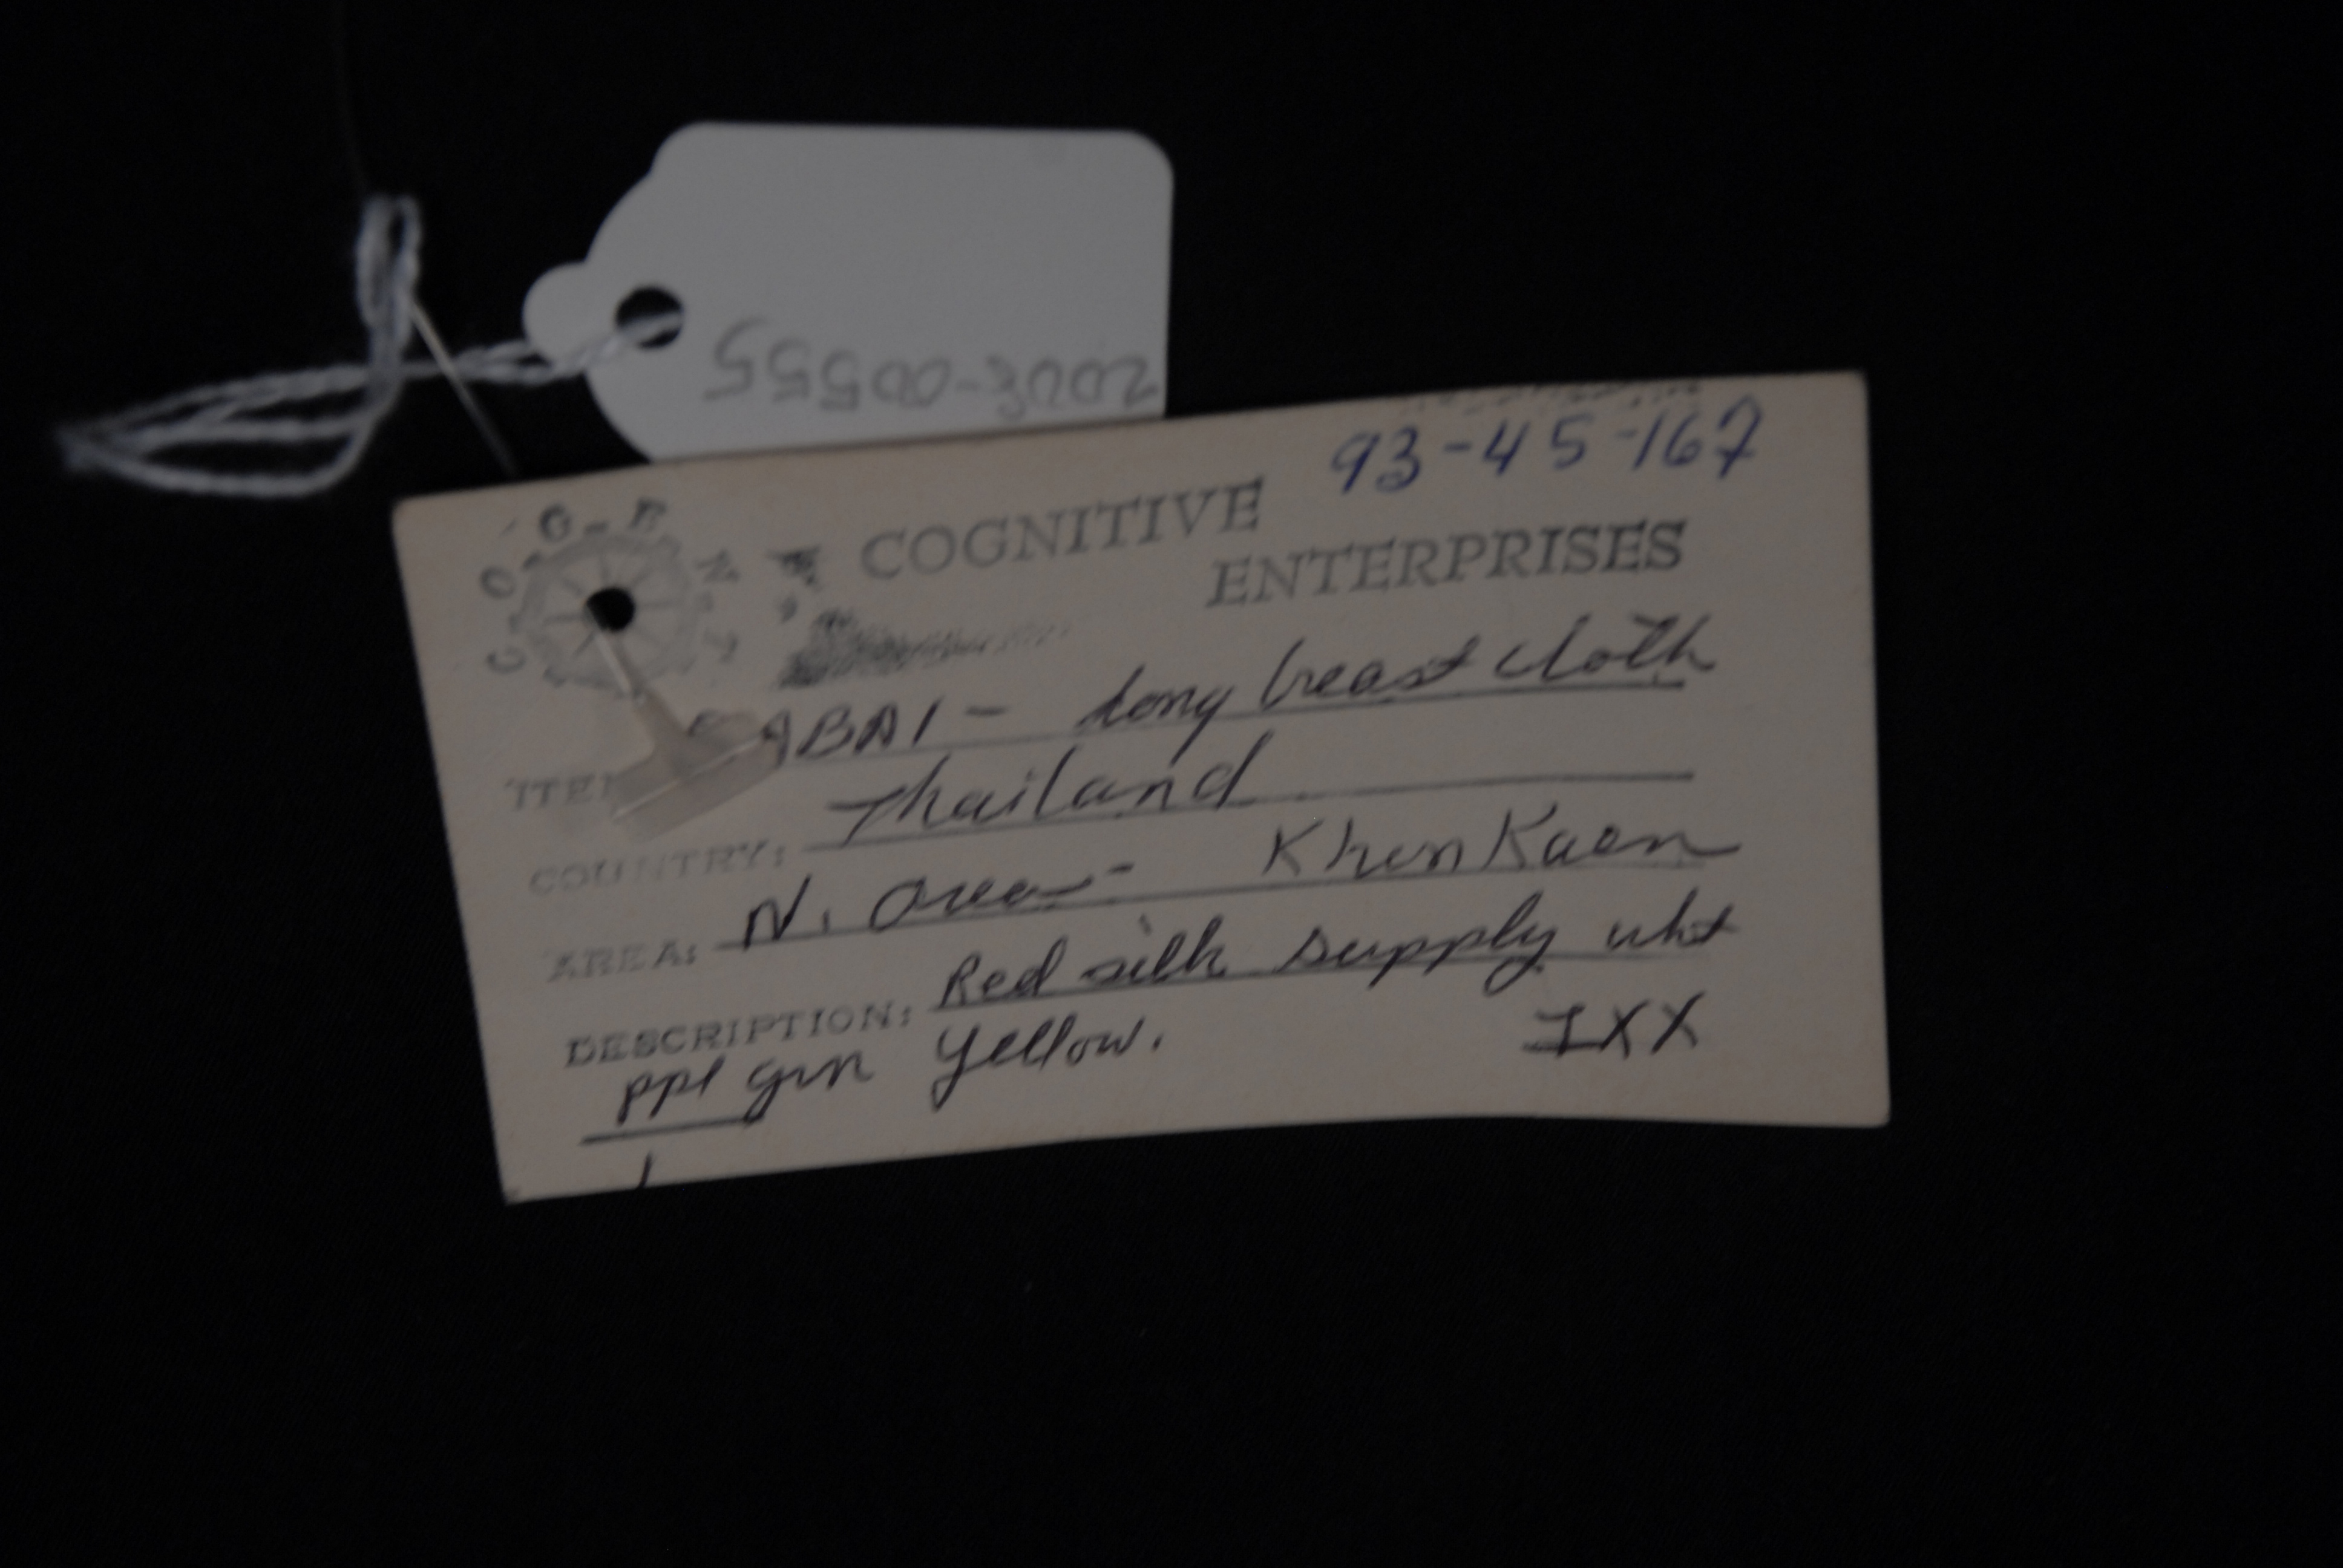 93-45-167
COGNITIVE
ENTERPRISES
SABAI - Long breast cloth
COUNTRY: Thailand
AREA: N. area - Khon Kaen
DESCRIPTION: Red silk supply wht
ppl grn yellow. IXX